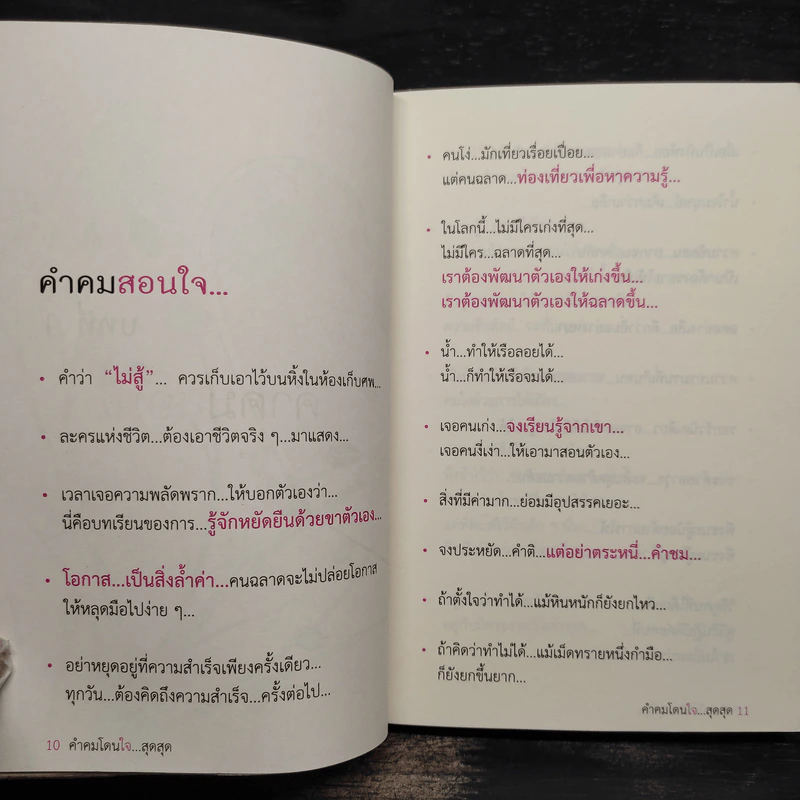 คำคมสอนใจ...
• คำว่า "ไม่สู้"... ควรเก็บเอาไว้บนหิ้งในห้องเก็บศพ...
• ละครแห่งชีวิต...ต้องเอาชีวิตจริง ๆ...มาแสดง...
• เวลาเจอความพลัดพราก...ให้บอกตัวเองว่า...
นี่คือบทเรียนของการ...รู้จักหยัดยืนด้วยขาตัวเอง...
• โอกาส...เป็นสิ่งล้ำค่า...คนฉลาดจะไม่ปล่อยโอกาส
ให้หลุดมือไปง่าย ๆ...
• อย่าหยุดอยู่ที่ความสำเร็จเพียงครั้งเดียว...
ทุกวัน...ต้องคิดถึงความสำเร็จ...ครั้งต่อไป...
10 คำคมโดนใจ...สุดสุด
• คนโง่...มักเที่ยวเรื่อยเปื่อย...
แต่คนฉลาด...ท่องเที่ยวเพื่อหาความรู้...
• ในโลกนี้...ไม่มีใครเก่งที่สุด...
ไม่มีใคร...ฉลาดที่สุด...
เราต้องพัฒนาตัวเองให้เก่งขึ้น...
เราต้องพัฒนาตัวเองให้ฉลาดขึ้น...
• น้ำ...ทำให้เรือลอยได้...
น้ำ...ก็ทำให้เรือจมได้...
• เจอคนเก่ง...จงเรียนรู้จากเขา...
เจอคนงี่เง่า...ให้เอามาสอนตัวเอง...
• สิ่งที่มีค่ามาก...ย่อมมีอุปสรรคเยอะ...
• จงประหยัด...คำติ...แต่อย่าตระหนี่...คำชม...
• ถ้าตั้งใจว่าทำได้...แม้หินหนักก็ยังยกไหว...
• ถ้าคิดว่าทำไม่ได้...แม้เม็ดทรายหนึ่งกำมือ...
ก็ยังยกขึ้นยาก...
คำคมโดนใจ...สุดสุด 11